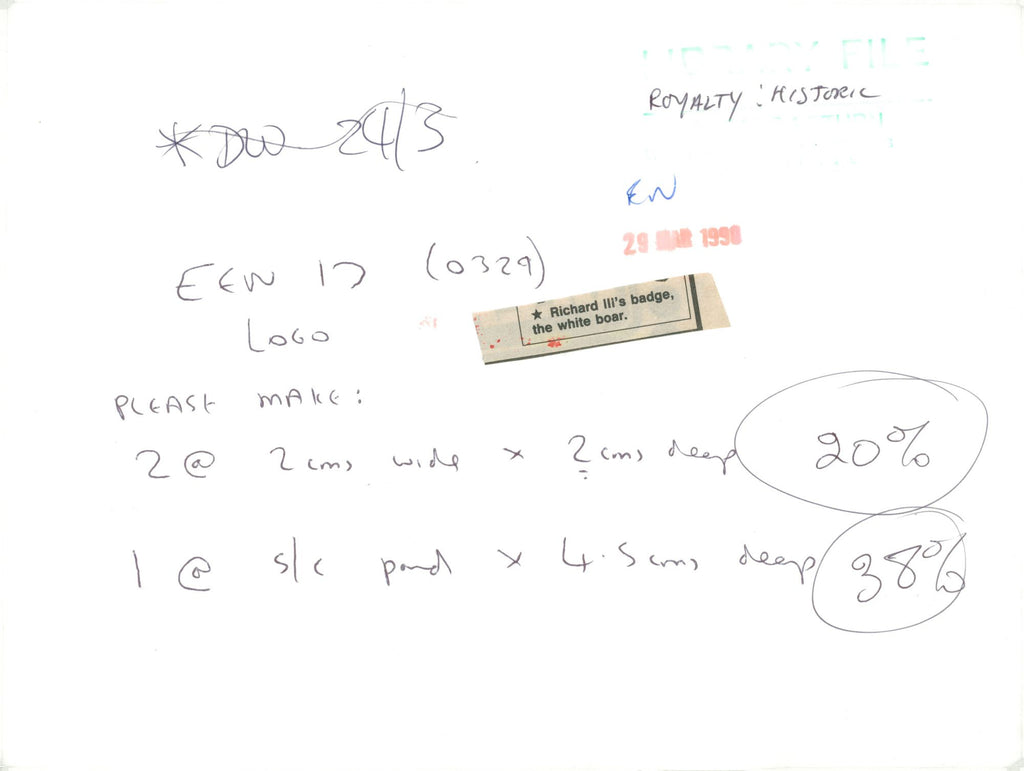 LIBRARY FILE
ROYALTY : HISTORIC
*DW 24/3
EN
29 MAR 1990
EEN 17 (0329)
LOGO
★ Richard III's badge,
the white boar.
PLEASE MAKE:
2 @ 2 cms wide x 2 cms deep 20%
1 @ s/c pand x 4.5 cms deep 38%